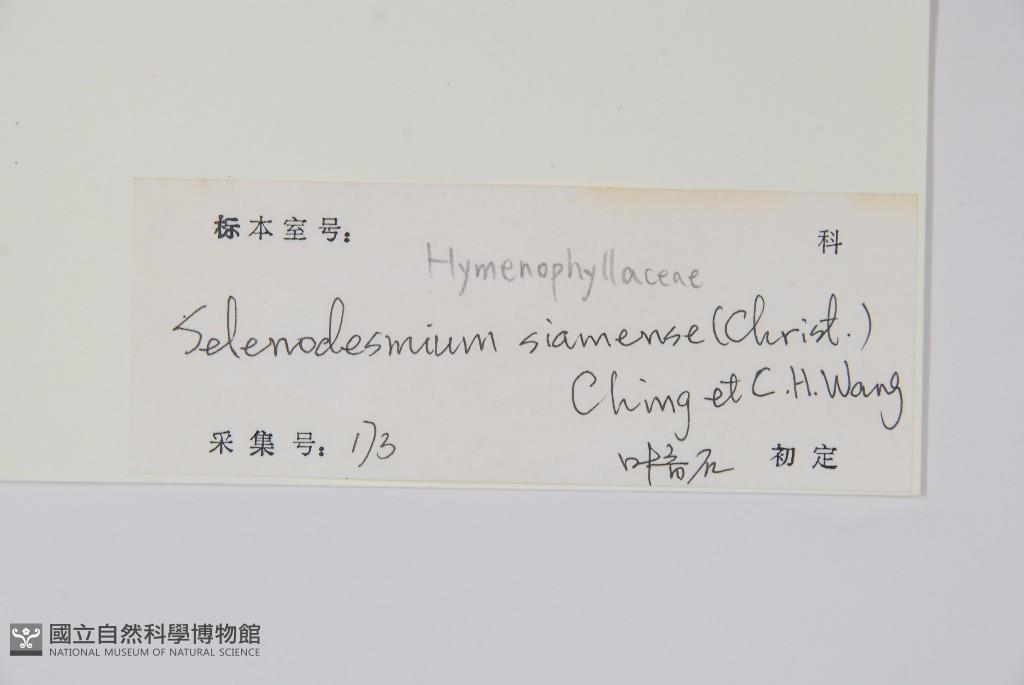 标本室号:
科
Hymenophyllaceae
Selenodesmium siamense (Christ.)
Ching et C.H.Wang
采集号: 173
叶 初定
國立自然科學博物館
NATIONAL MUSEUM OF NATURAL SCIENCE